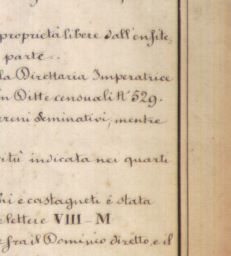 proprietà libere dall'enfite
parte
la Direttaria Imperatrice
in Ditte censuali N° 529.
reni Seminativi, mentre
indicata nei quarte
hi e castagneti è stata
lettere VIII - M
fra il Dominio diretto, e il